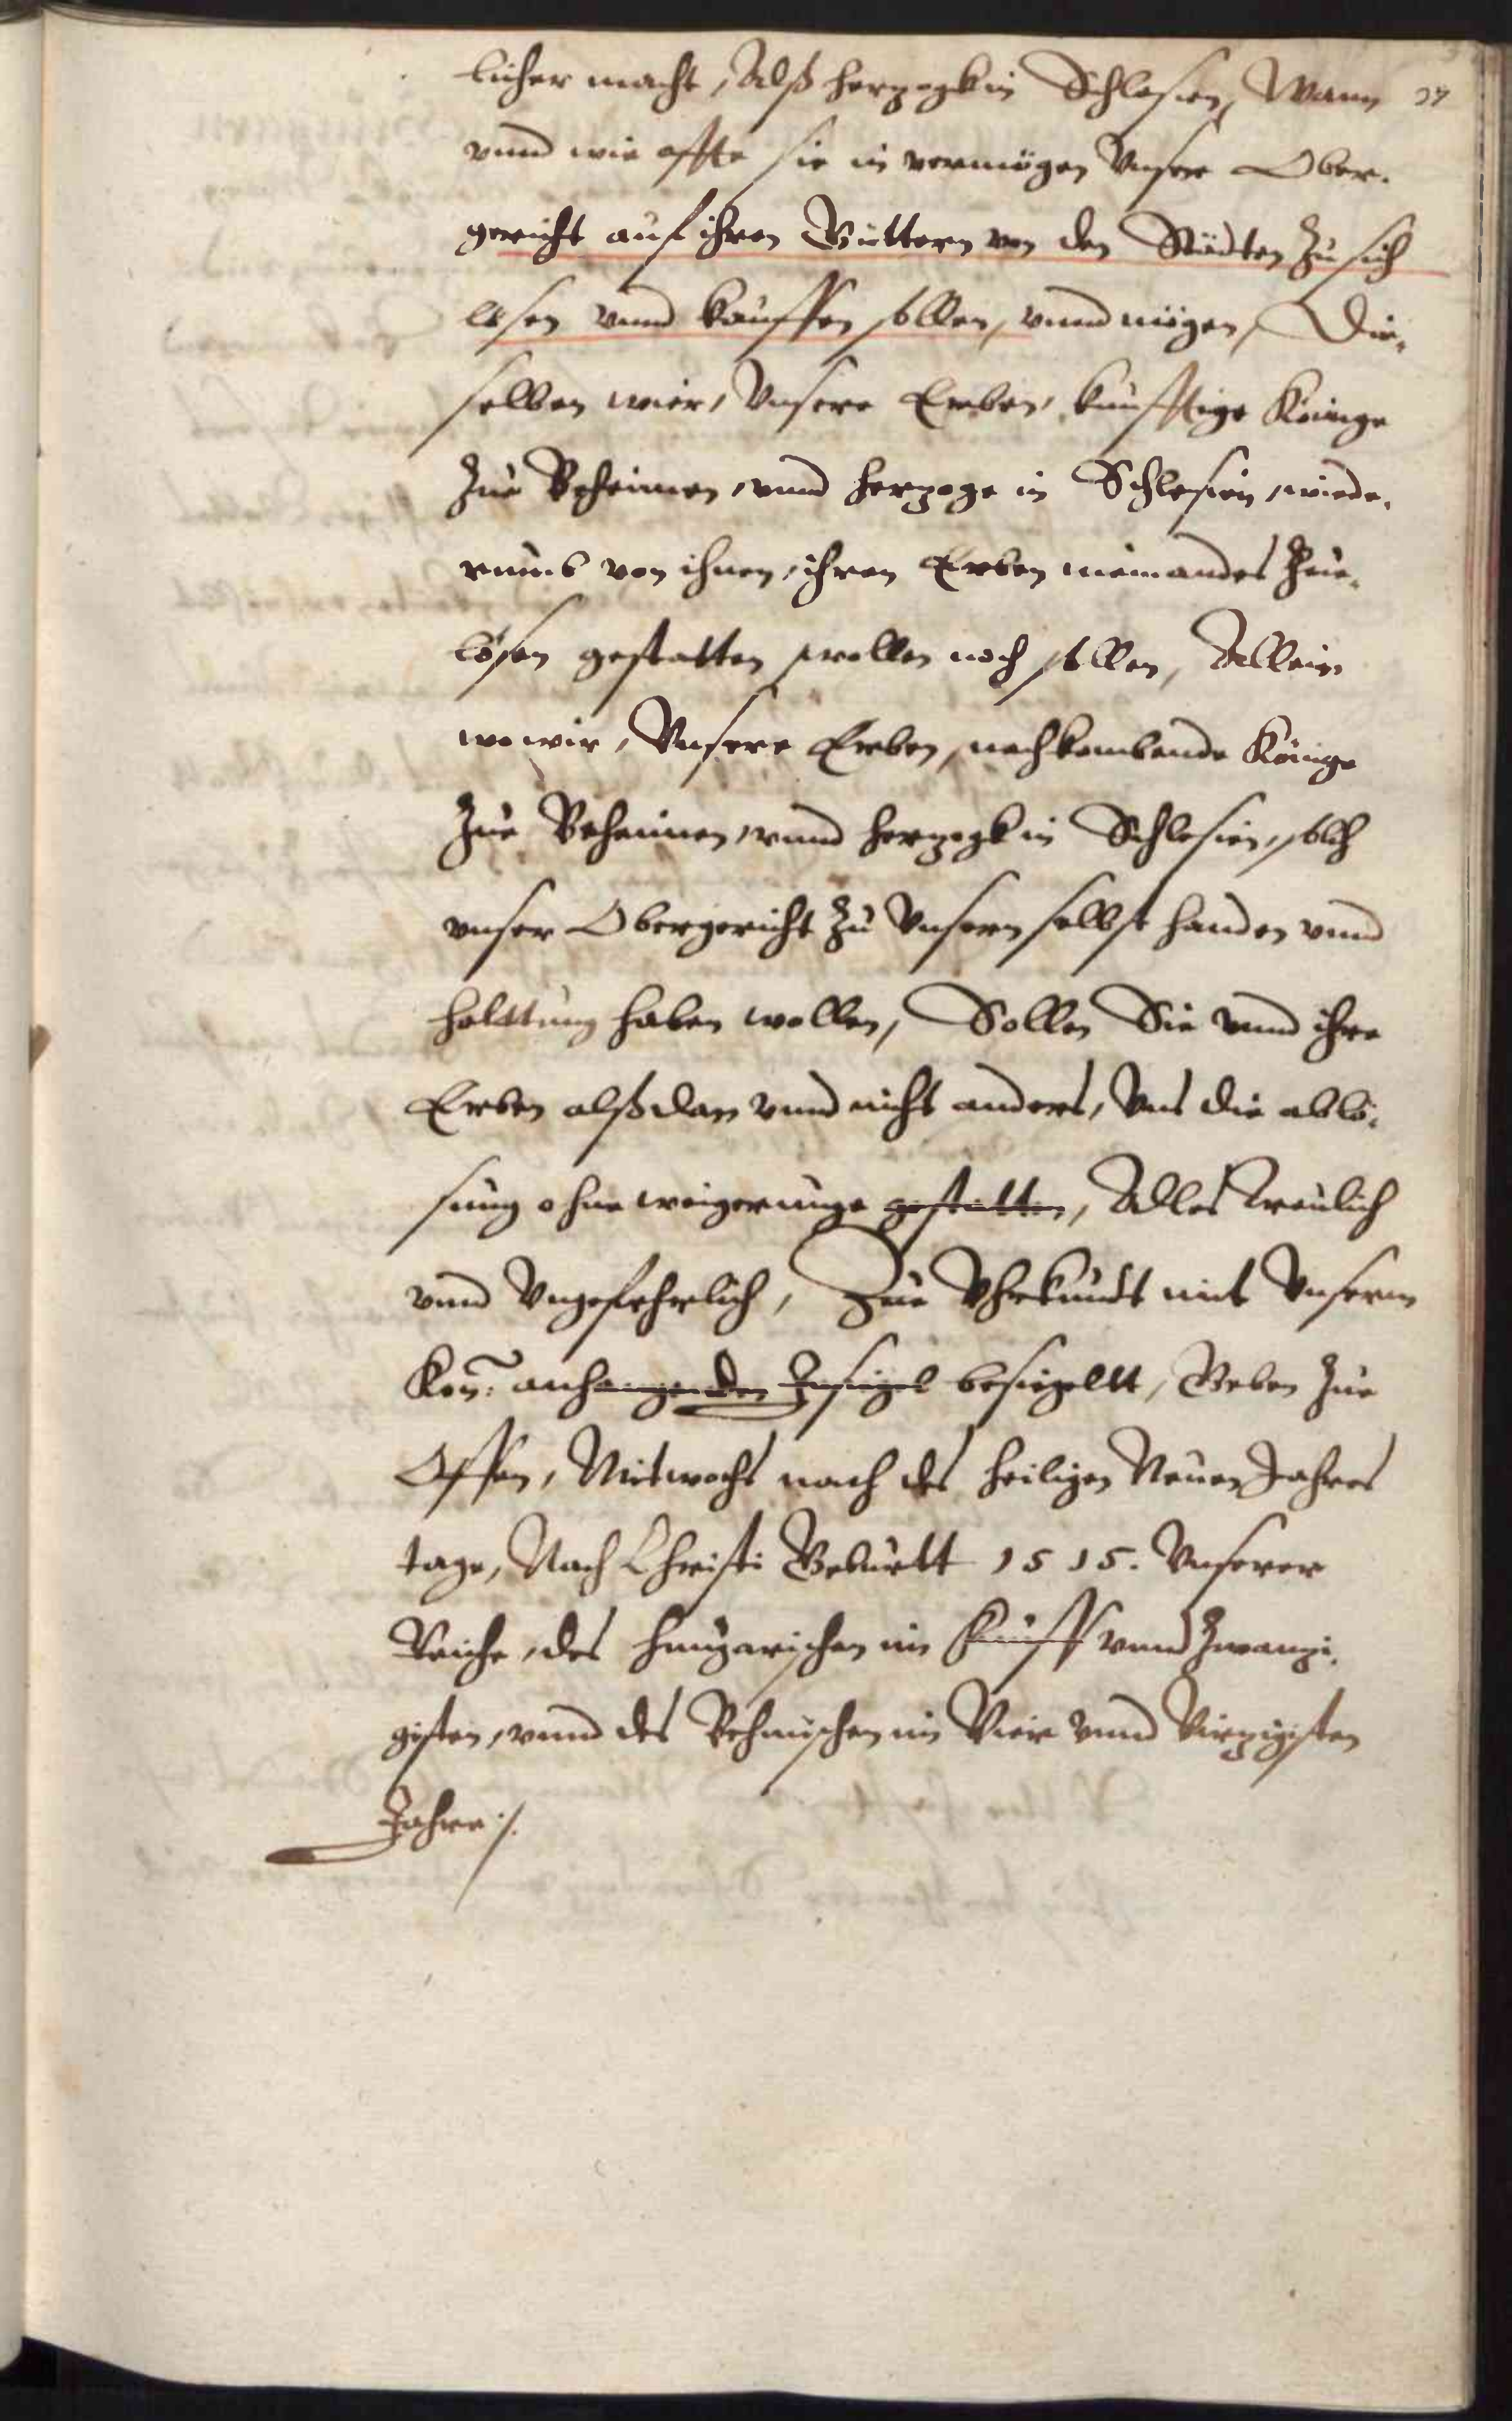 licher macht, Alß herzogk in Schlesien, Wann
vnnd wie offte sie in vermögen Vnser Ober-
gericht auf ihren Güttern von den Städten zu sich
lösen vnnd kauffen sollen, vnnd mögen, Die-
selben wier, Vnsere Erben, künfftige Könige
zue Beheimen, vnnd herzoge in Schlesien, wiede-
rumb von ihnen, ihren Erben niemandes zue-
lösen gestatten wollen noch sollen, Allein
wo wir, Vnsere Erben, nachkombende Könige
zue Beheimen, vnnd herzogk in Schlesien, solch
vnser Obergericht zu Vnsern selbst handen vnnd
halttung haben wollen, Sollen Sie vnnd ihre
Erben alßdan vnnd nicht anders, Vns die ablö-
sung ohne weigerunge gestatten, Alles treulich
vnnd Vngefehrlich, Zue Vhrkundt mit Vnserm
Kön: anhangenden Insigel besiegellt, Geben zue
Offen, Mitwochs nach des heiligen Neuen Jahres
tage, Nach Christi Geburtt 1515. Vnserer
Reiche, des hungarischen im fünff vnnd zwanzi-
gisten, vnnd des Behmischen im Vier vnnd Vierzigisten
Jahre ./.